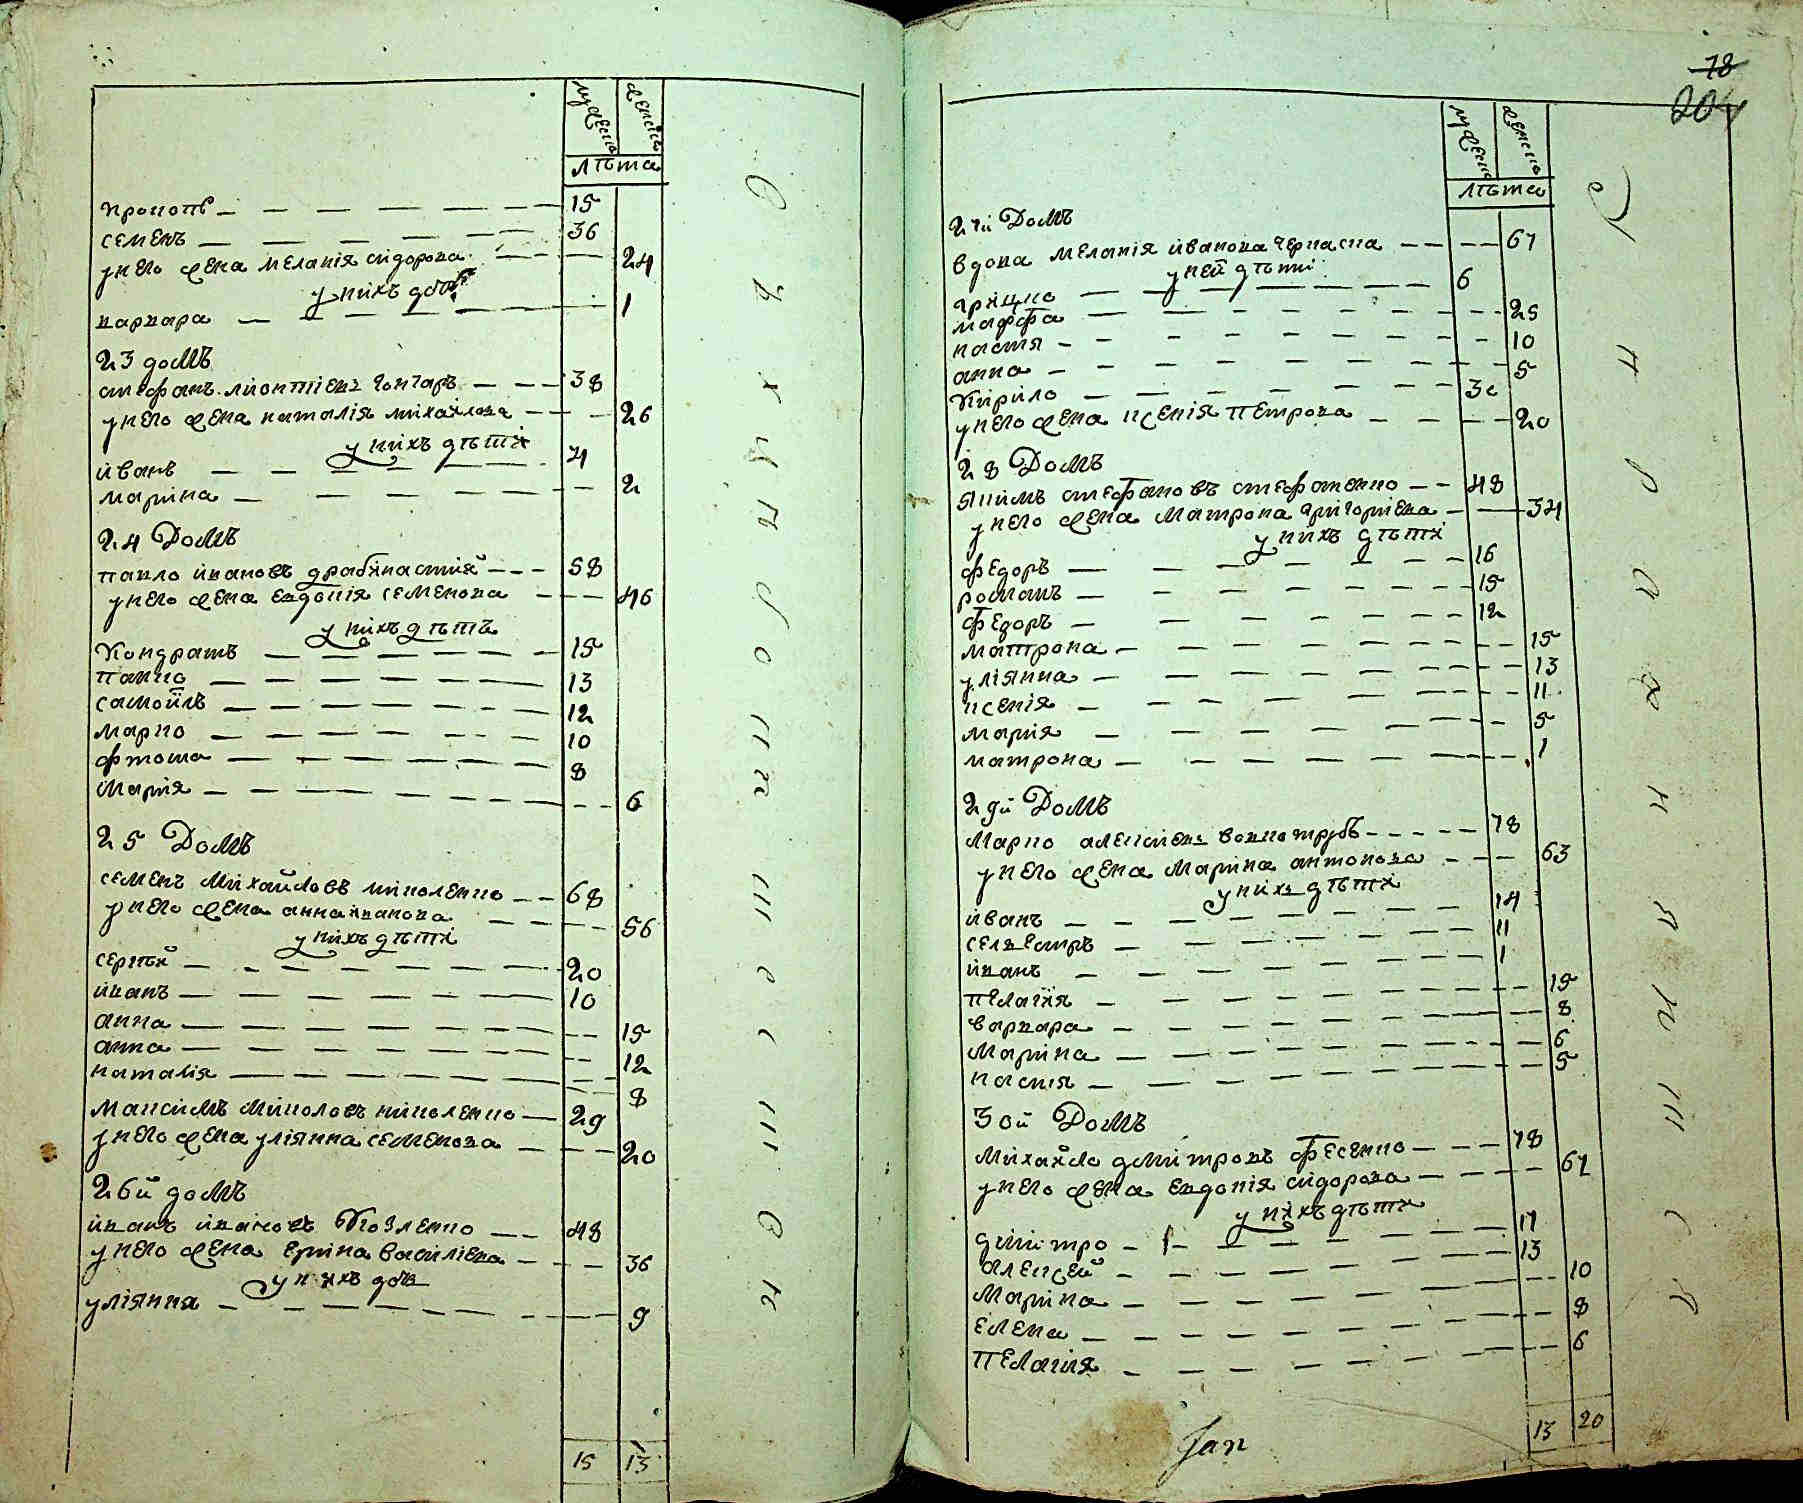 мужеска
женска
лѣта
прокопъ 15
семенъ 36
у него жена меланія сидорова 24
у нихъ дочь
варвара 1
23 домъ
стефанъ лионтіевъ гончаръ 38
у него жена наталія михайлова 26
у нихъ дѣти
иванъ 4
марина 2
24 Домъ
павло ивановъ драбинастий 58
у него жена евдокія семенова 46
у нихъ дѣти
кондратъ 15
панко 13
самойлъ 12
марко 10
фтома 8
марія 6
25 Домъ
семенъ михайловъ николенко 68
у него жена анна иванова 56
у нихъ дѣти
сергѣй 20
иванъ 10
анна 15
анна 12
наталія 8
максимъ николовъ николенко 29
у него жена уліянна семенова 20
26й домъ
иванъ ивановъ козленко 48
у него жена ерина василіева 36
у нихъ дочь
уліянна 9
15 13
78
204
мужеска
женска
лѣта
27й Домъ
вдова меланія иванова черкаска 67
у ней дѣти
грицко 6
маффа 25
настя 10
анна 5
кирило 30
у него жена ксенія петрова 20
28 Домъ
якимъ стефановъ стефаненко 48
у него жена матрона григоріева 34
у нихъ дѣти
федоръ 16
романъ 15
федоръ 12
матрона 15
уліянна 13
ксенія 11
марія 5
матрона 1
29й Домъ
марко алексіевъ вовкотрубъ 78
у него жена марина антонова 63
у нихъ дѣти
иванъ 14
селвестръ 11
иванъ 1
пелагія 15
варвара 8
марина 6
настя 5
30й Домъ
михайло дмитровъ фесенко 78
у него жена евдокія сидорова 67
у нихъ дѣти
дмитро 17
алексей 13
марина 10
елена 8
пелагія 6
13 20